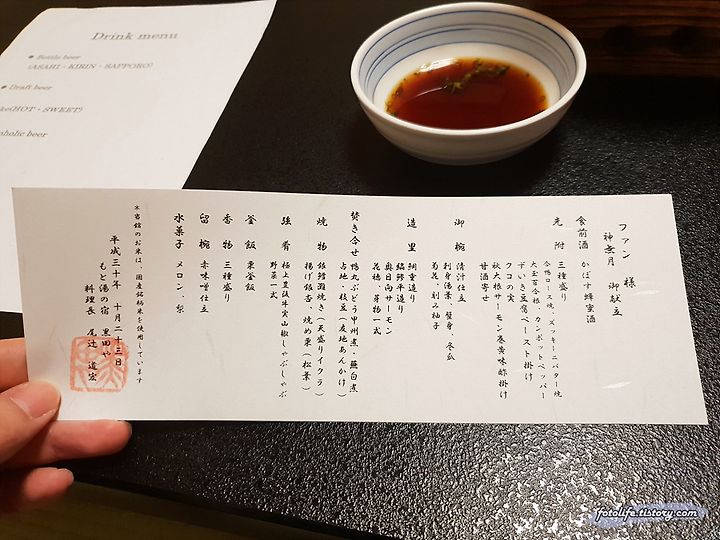 Drink menu
● Bottle beer
(ASAHI・KIRIN・SAPPORO)
● Draft beer
ke(HOT・SWEET)
oholic beer
ファン 様
神無月 御献立
食前酒 かぼす蜂蜜酒
先附 三種盛り
合鴨ロース焼、ズッキーニバター焼
大玉百合根、カンボットペッパー
ずいき豆腐ペースト掛け
クコの実
秋大根サーモン巻黄味酢掛け
甘酒寄せ
御椀 清汁仕立
刺身湯葉、蟹身、冬瓜
菊花、刻み柚子
造里 鯛重造り
縞鯵平造り
奥日向サーモン
花穂、芽物一式
焚き合せ 鴨丸ぶどう甲州煮・蕪白煮
占地・枝豆(友地あんかけ)
焼物 銀鱈灘焼き(天盛りイクラ)
揚げ銀杏、焼め栗(松葉)
強肴 極上豊後牛実山椒しゃぶしゃぶ
野菜一式
釜飯 栗釜飯
香物 三種盛り
留椀 赤味噌仕立
水菓子 メロン、梨
木当館のお米は、国産銘柄米を使用しています
平成三十年 十月二十三日
もと湯の宿 黒田や
料理長 尾辻 道宏
fotolife.tistory.com